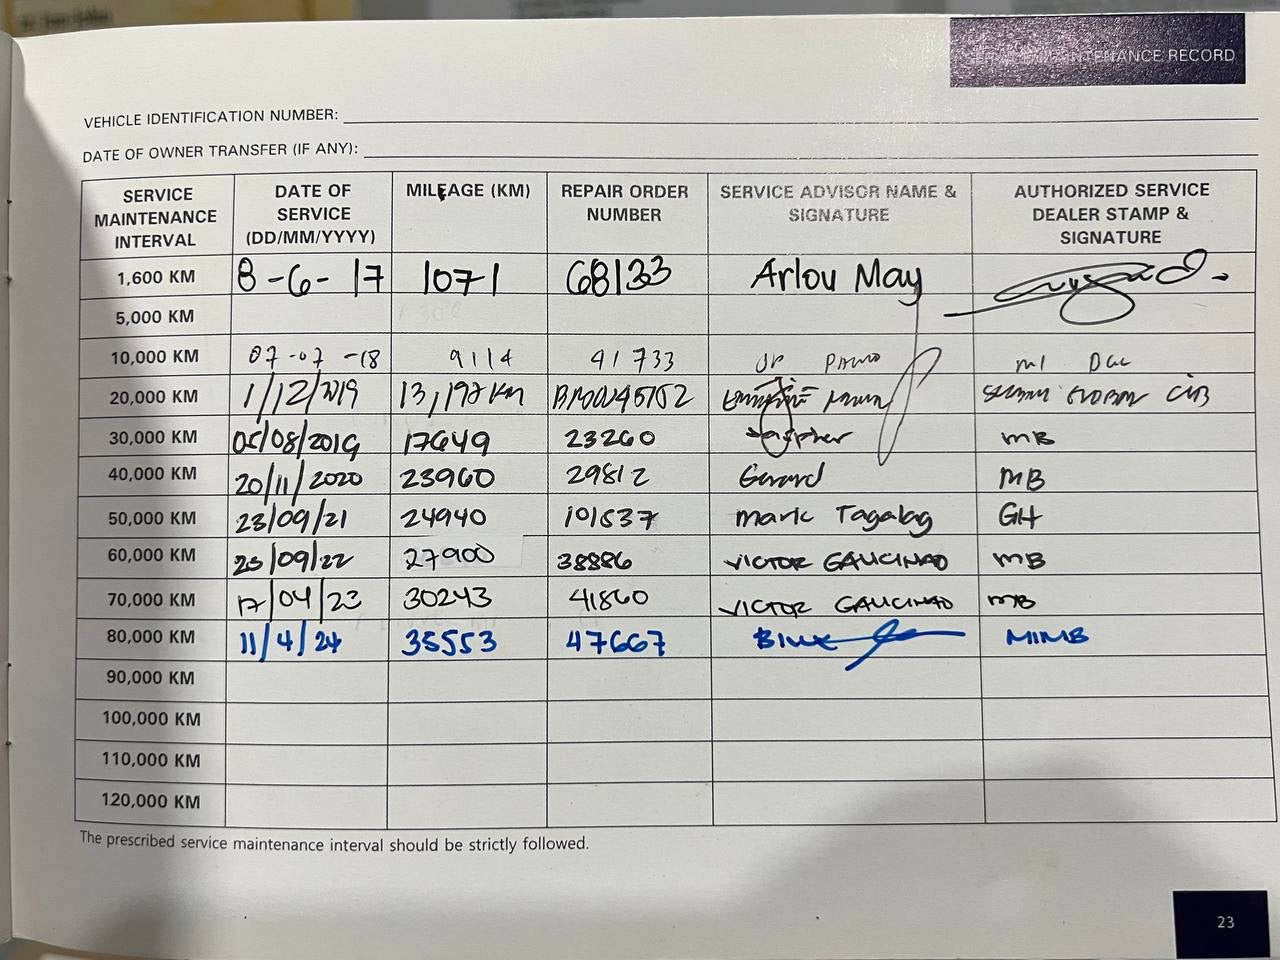 SERVICE MAINTENANCE RECORD
VEHICLE IDENTIFICATION NUMBER:
DATE OF OWNER TRANSFER (IF ANY):
SERVICE MAINTENANCE INTERVAL DATE OF SERVICE (DD/MM/YYYY) MILEAGE (KM) REPAIR ORDER NUMBER SERVICE ADVISOR NAME & SIGNATURE AUTHORIZED SERVICE DEALER STAMP & SIGNATURE
1,600 KM 8-6-17 1071 68133 Arlou May
5,000 KM
10,000 KM 07-07-18 9114 41733
20,000 KM 1/12/2019 13,197 KM
30,000 KM 05/08/2019 17649 23260 MB
40,000 KM 20/11/2020 23960 29812 Gerard MB
50,000 KM 23/09/21 24940 101537 Maric Tagalag GH
60,000 KM 23/09/22 27900 38886 VICTOR GAUCINAO MB
70,000 KM 17/04/23 30243 41860 VICTOR GAUCINAO MB
80,000 KM 11/4/24 35553 47667 MIMB
90,000 KM
100,000 KM
110,000 KM
120,000 KM
The prescribed service maintenance interval should be strictly followed.
23